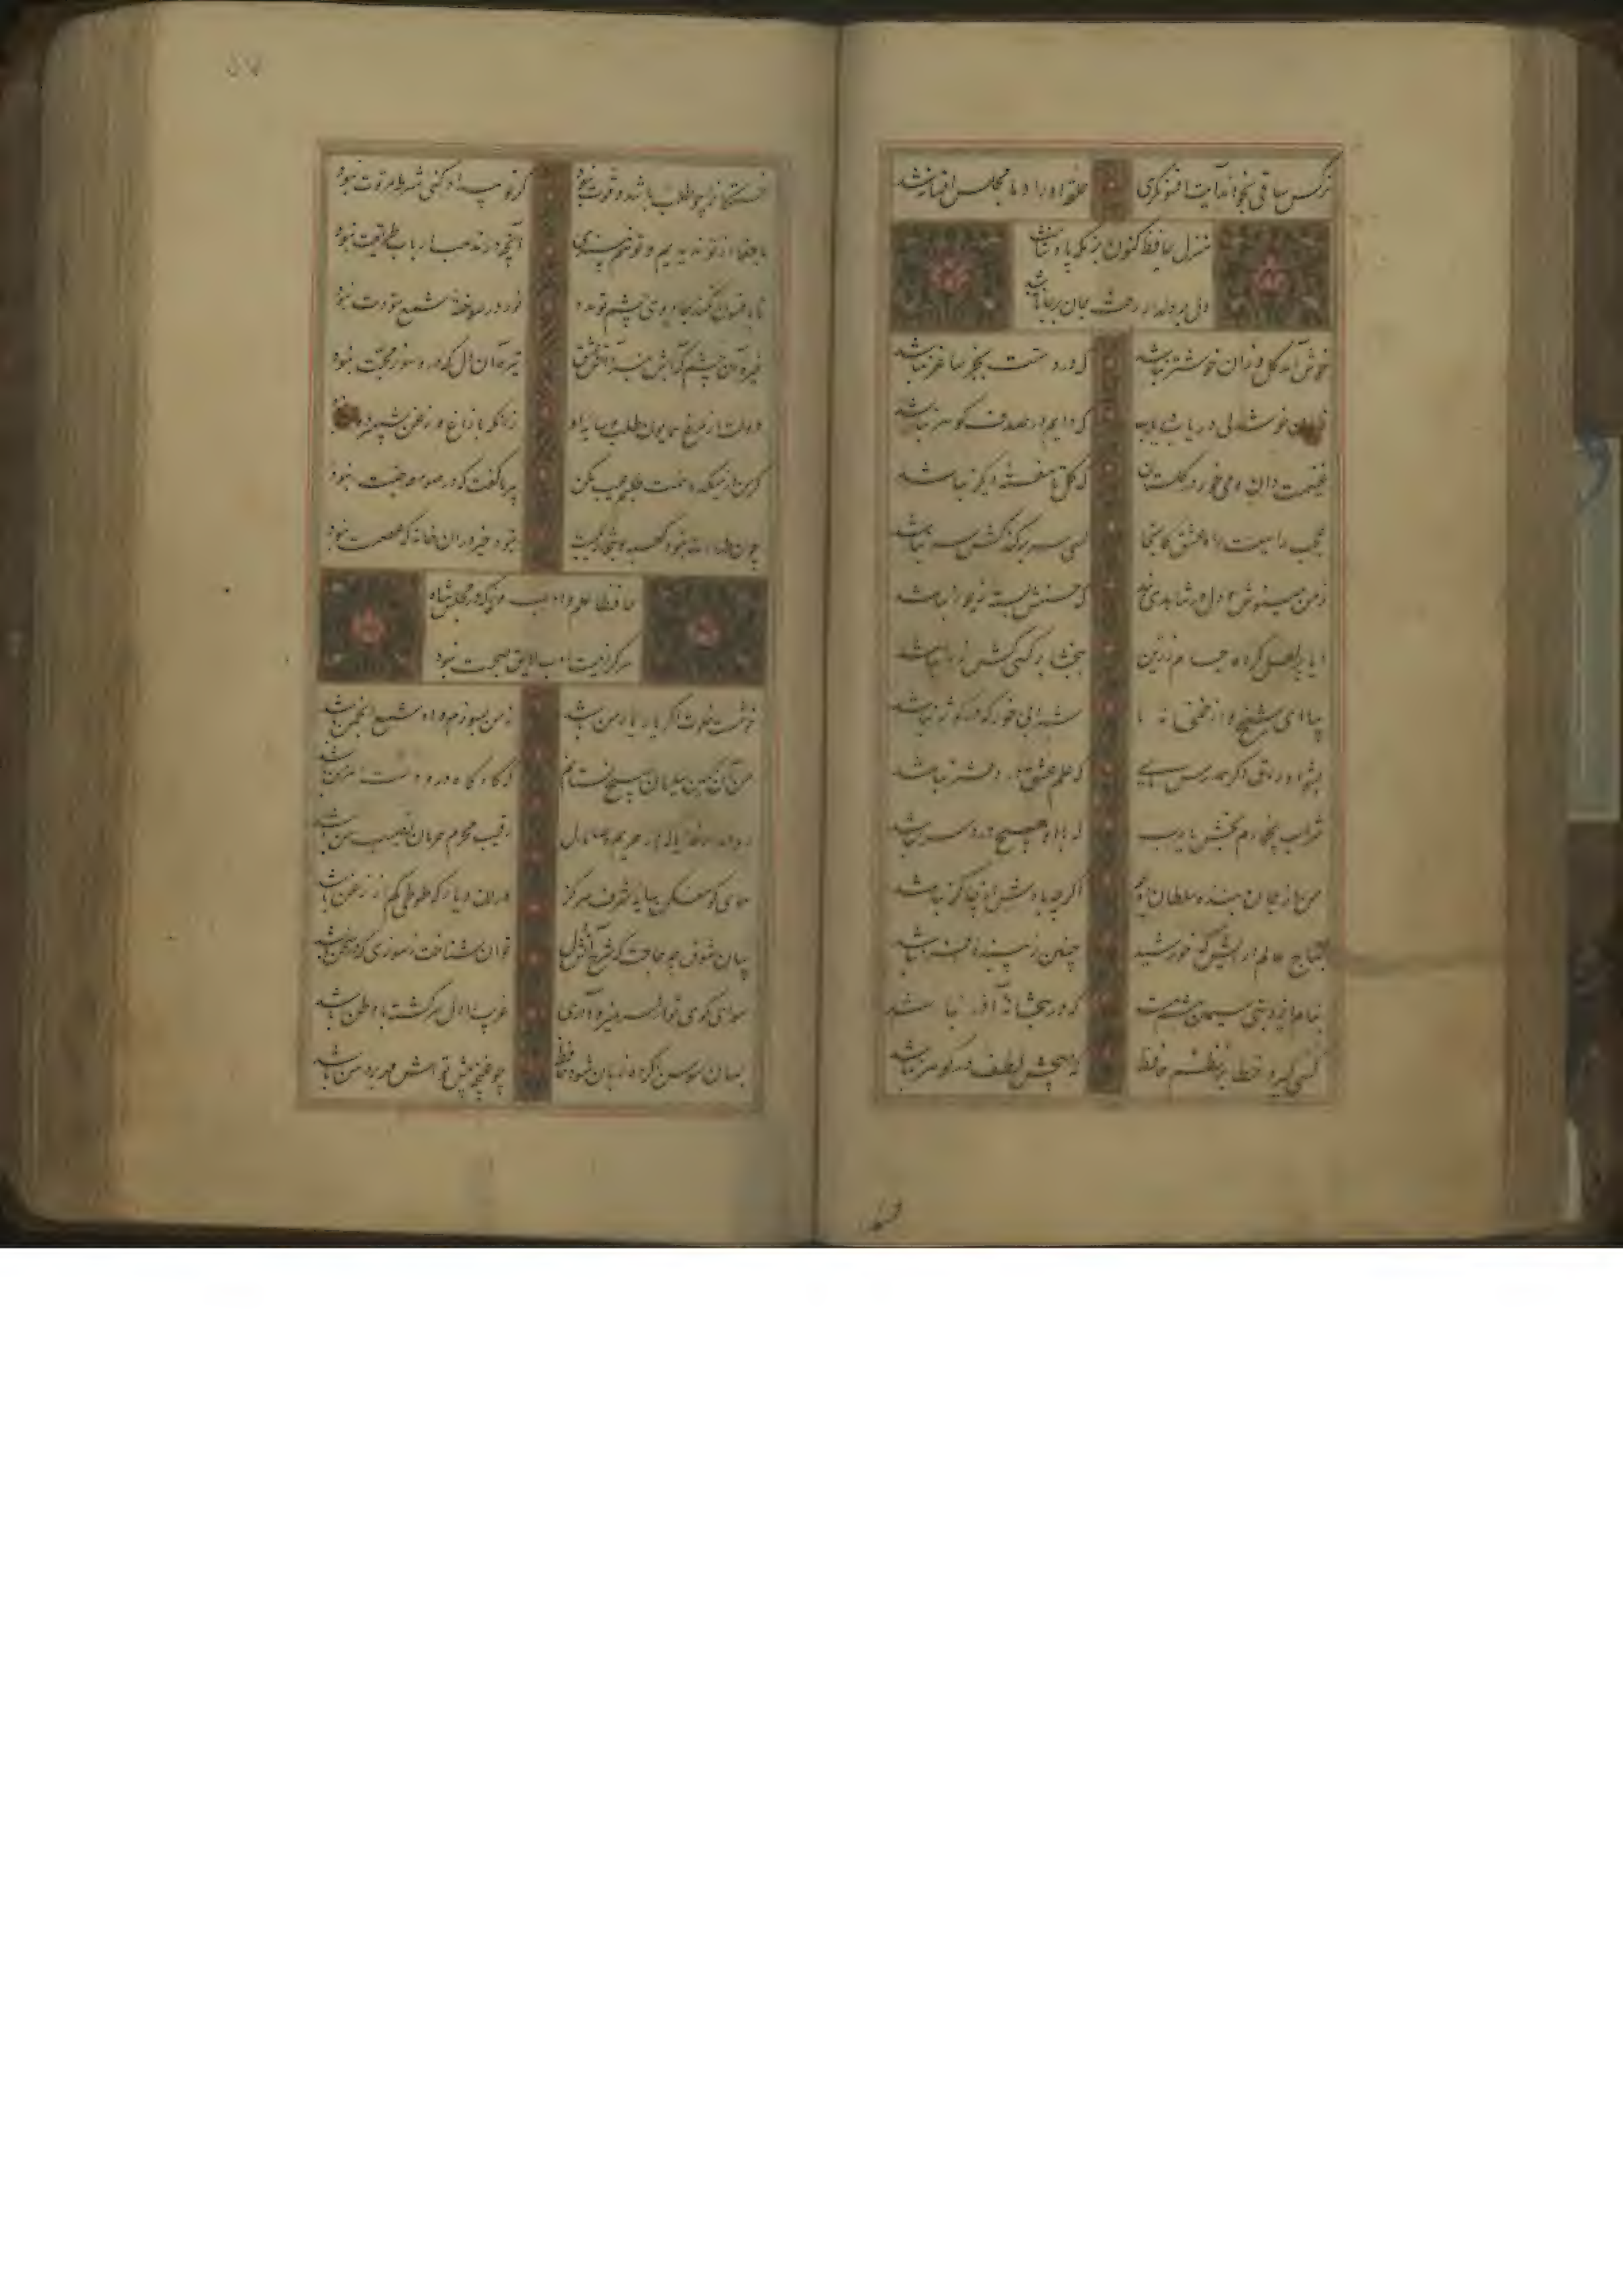 نرکس ساقی بخواند آیت افسونکری حلقه اوراد ما مجلس افسانه شد
منزل حافظ کنون بزمکه پادشاست
دل بر دلدار رفت جان بر جانانه شد
خوش آمد کل وزان خوشتر نباشد که در دستت بجز ساغر نباشد
زمان خوشدلی دریاب دریاب که دایم در صدف کوهر نباشد
غنیمت دان و می خور در کلستان که کل تا هفته دیکر نباشد
عجب راهیست راه عشق کانجا کسی سر برکند کش سر نباشد
ز من بنیوش و دل در شاهدی بند که حسنش بسته زیور نباشد
ایا پر لعل کرده جام زرین ببخشا بر کسی کش زر نباشد
بیا ای شیخ و از خمخانه ما شرابی خور که در کوثر نباشد
بشو اوراق اکر همدرس مایی که علم عشق در دفتر نباشد
شراب بی خمارم بخش یا رب که با او هیچ درد سر نباشد
من از جان بنده سلطان اویسم اکرچه یادش از چاکر نباشد
بتاج عالم آرایش که خورشید چنین زیبنده افسر نباشد
بنام ایزد بتی سیمین تنم هست که در بتخانه آذر نباشد
کسی کیرد خطا بر نظم حافظ که هیچش لطف در کوهر نباشد
خستکانرا چو طلب باشد و قوت نبود کر تو بیداد کنی شرط مروت نبود
ما جفا از تو ندیدیم و تو خود نپسندی آنچه در مذهب ارباب طریقت نبود
تا بافسون نکند جادوی چشم تو مدد نور در سوختن شمع محبت نبود
خیره آن چشم که آبش نبرد آتش عشق تیره آن دل که درو نور محبت نبود
دولت از مرغ همایون طلب و سایه او زانکه با زاغ و زغن شهپر دولت نبود
کر من از میکده همت طلبم عیب مکن پیر ما کفت که در صومعه همت نبود
چون طهارت نبود کعبه و بتخانه یکیست نبود خیر در آن خانه که عصمت نبود
حافظا علم و ادب ورز که در مجلس شاه
هر کرا نیست ادب لایق صحبت نبود
خوشست خلوت اکر یار یار من باشد نه من بسوزم و او شمع انجمن باشد
من آن نکین سلیمان بهیچ نستانم که کاه کاه درو دست اهرمن باشد
روا مدار خدایا که در حریم وصال رقیب محرم و حرمان نصیب من باشد
همای کو مفکن سایه شرف هرکز در آن دیار که طوطی کم از زغن باشد
بیان شوق چه حاجت که شرح آتش دل توان شناخت ز سوزی که در سخن باشد
هوای کوی تو از سر نمیرود آری غریب را دل سرکشته با وطن باشد
بسان سوسن اکر ده زبان شود حافظ چو غنچه پیش تواش مهر بر دهن باشد